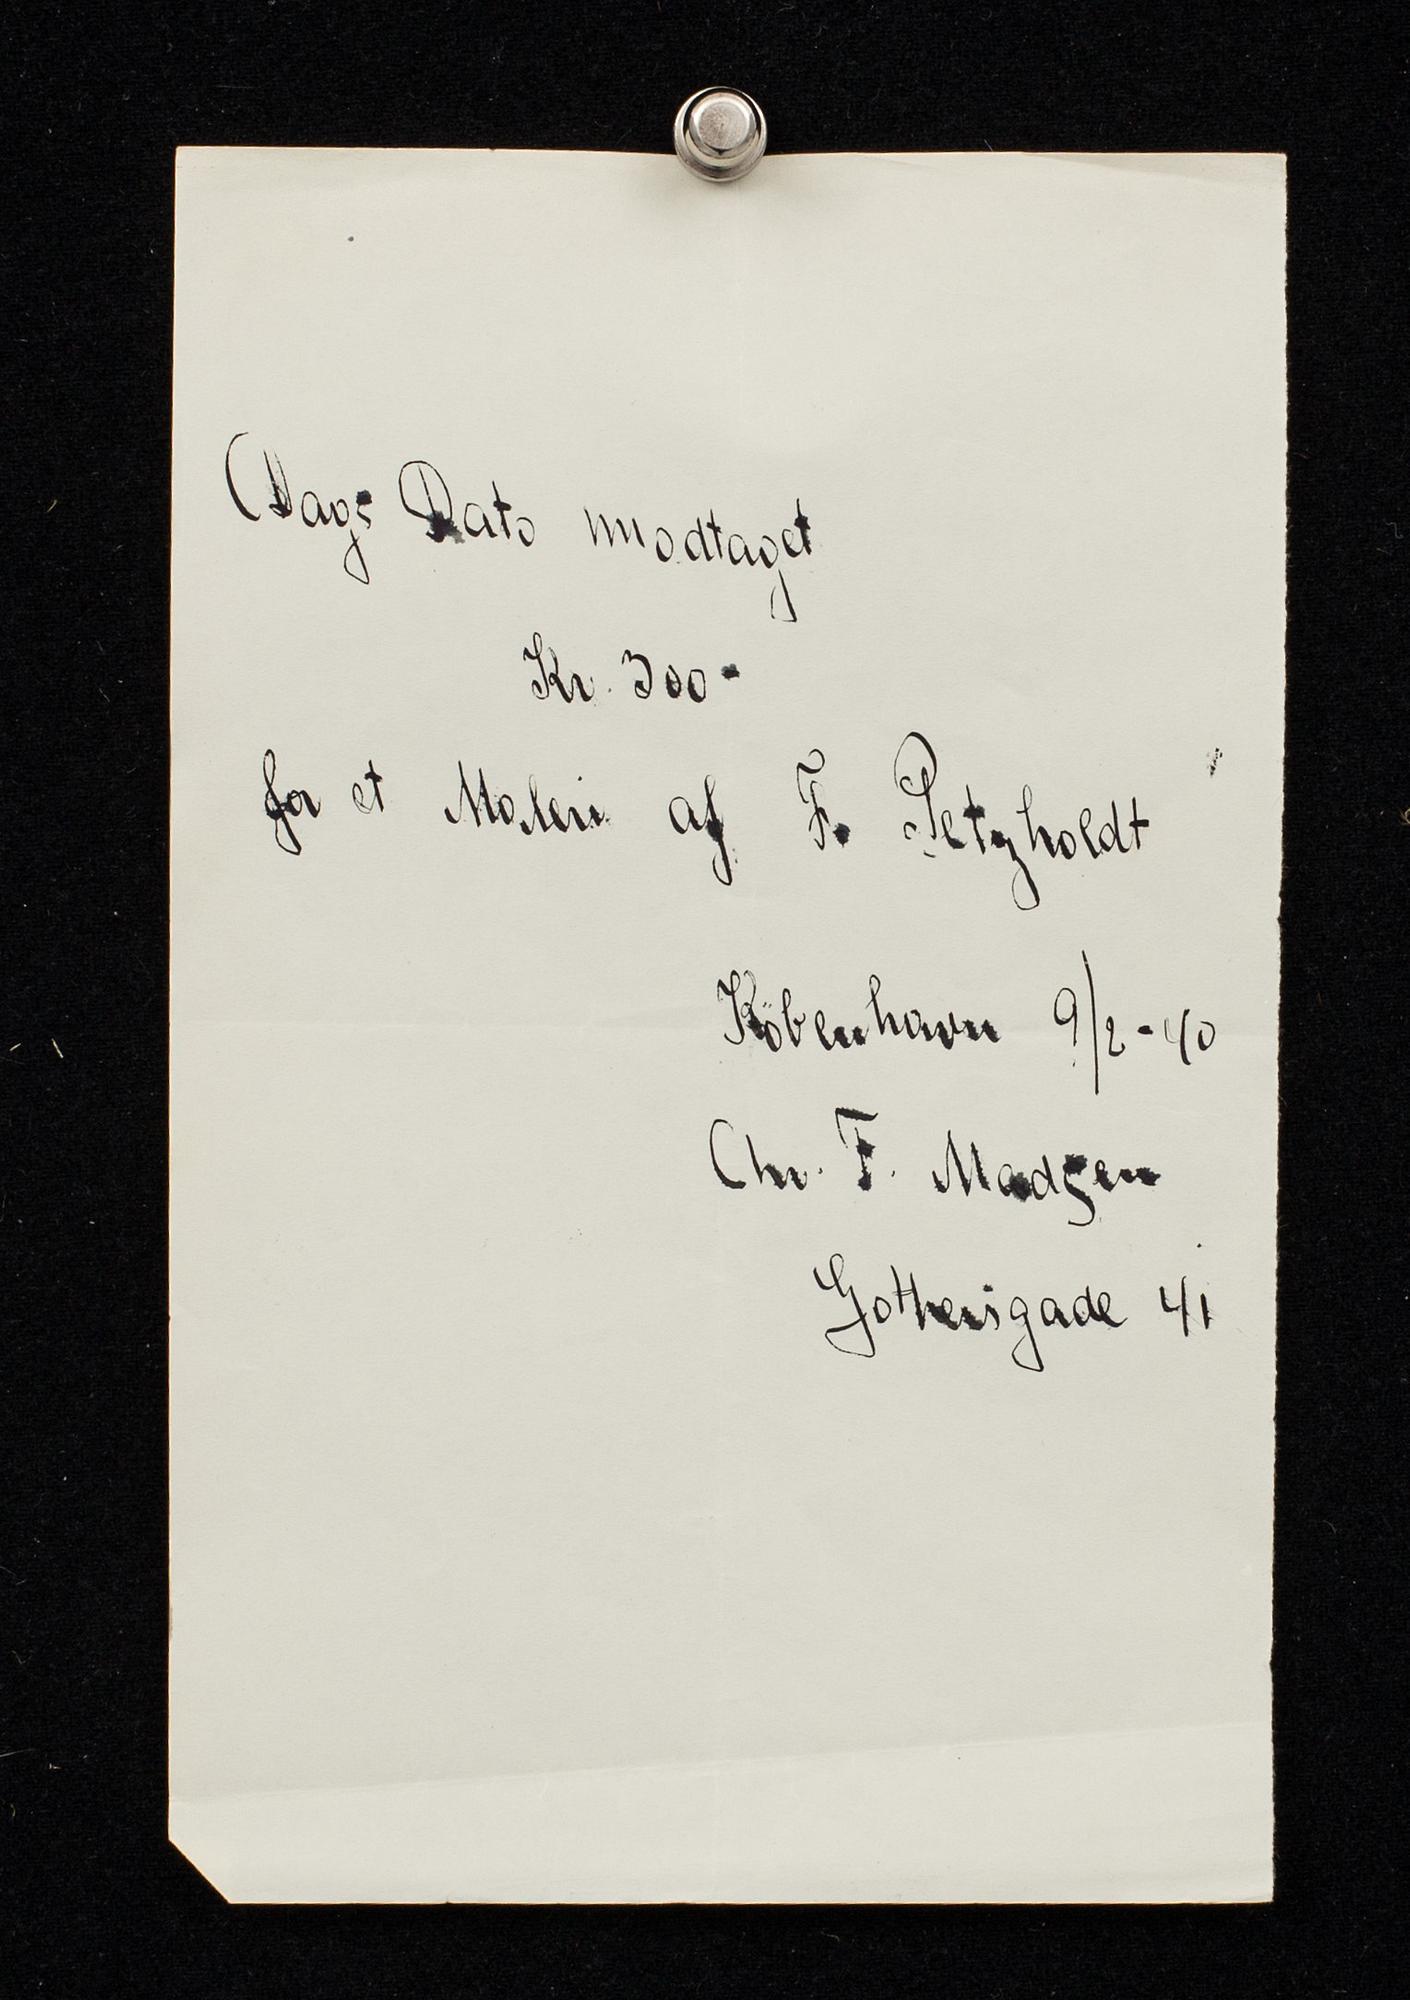 Dags Dato modtaget
Kr. 300-
for et Maleri af F. Petzholdt
Köbenhavn 9/2-40
Chr. F. Madsen
Gothersgade 41